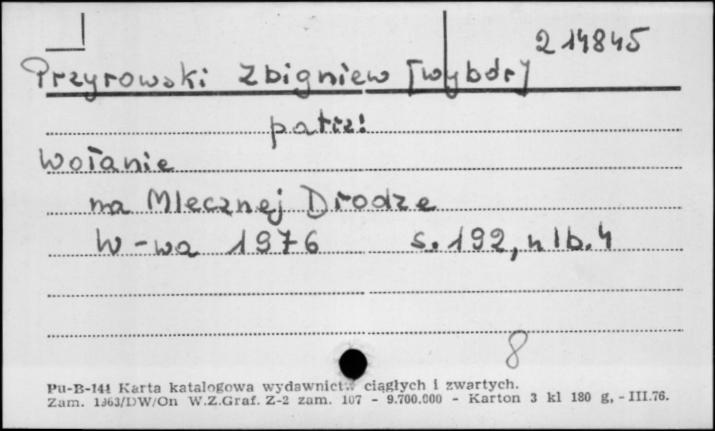 214845
Przyrowski Zbigniew [wybór]
patrz!
Wołanie
na Mlecznej Drodze
W-wa 1976 s. 192, nlb. 4
8
Pu-B-141 Karta katalogowa wydawnictw ciągłych i zwartych.
Zam. 1363/DW/On W.Z.Graf. Z-2 zam. 107 - 9.700.000 - Karton 3 kl 180 g, - III.76.